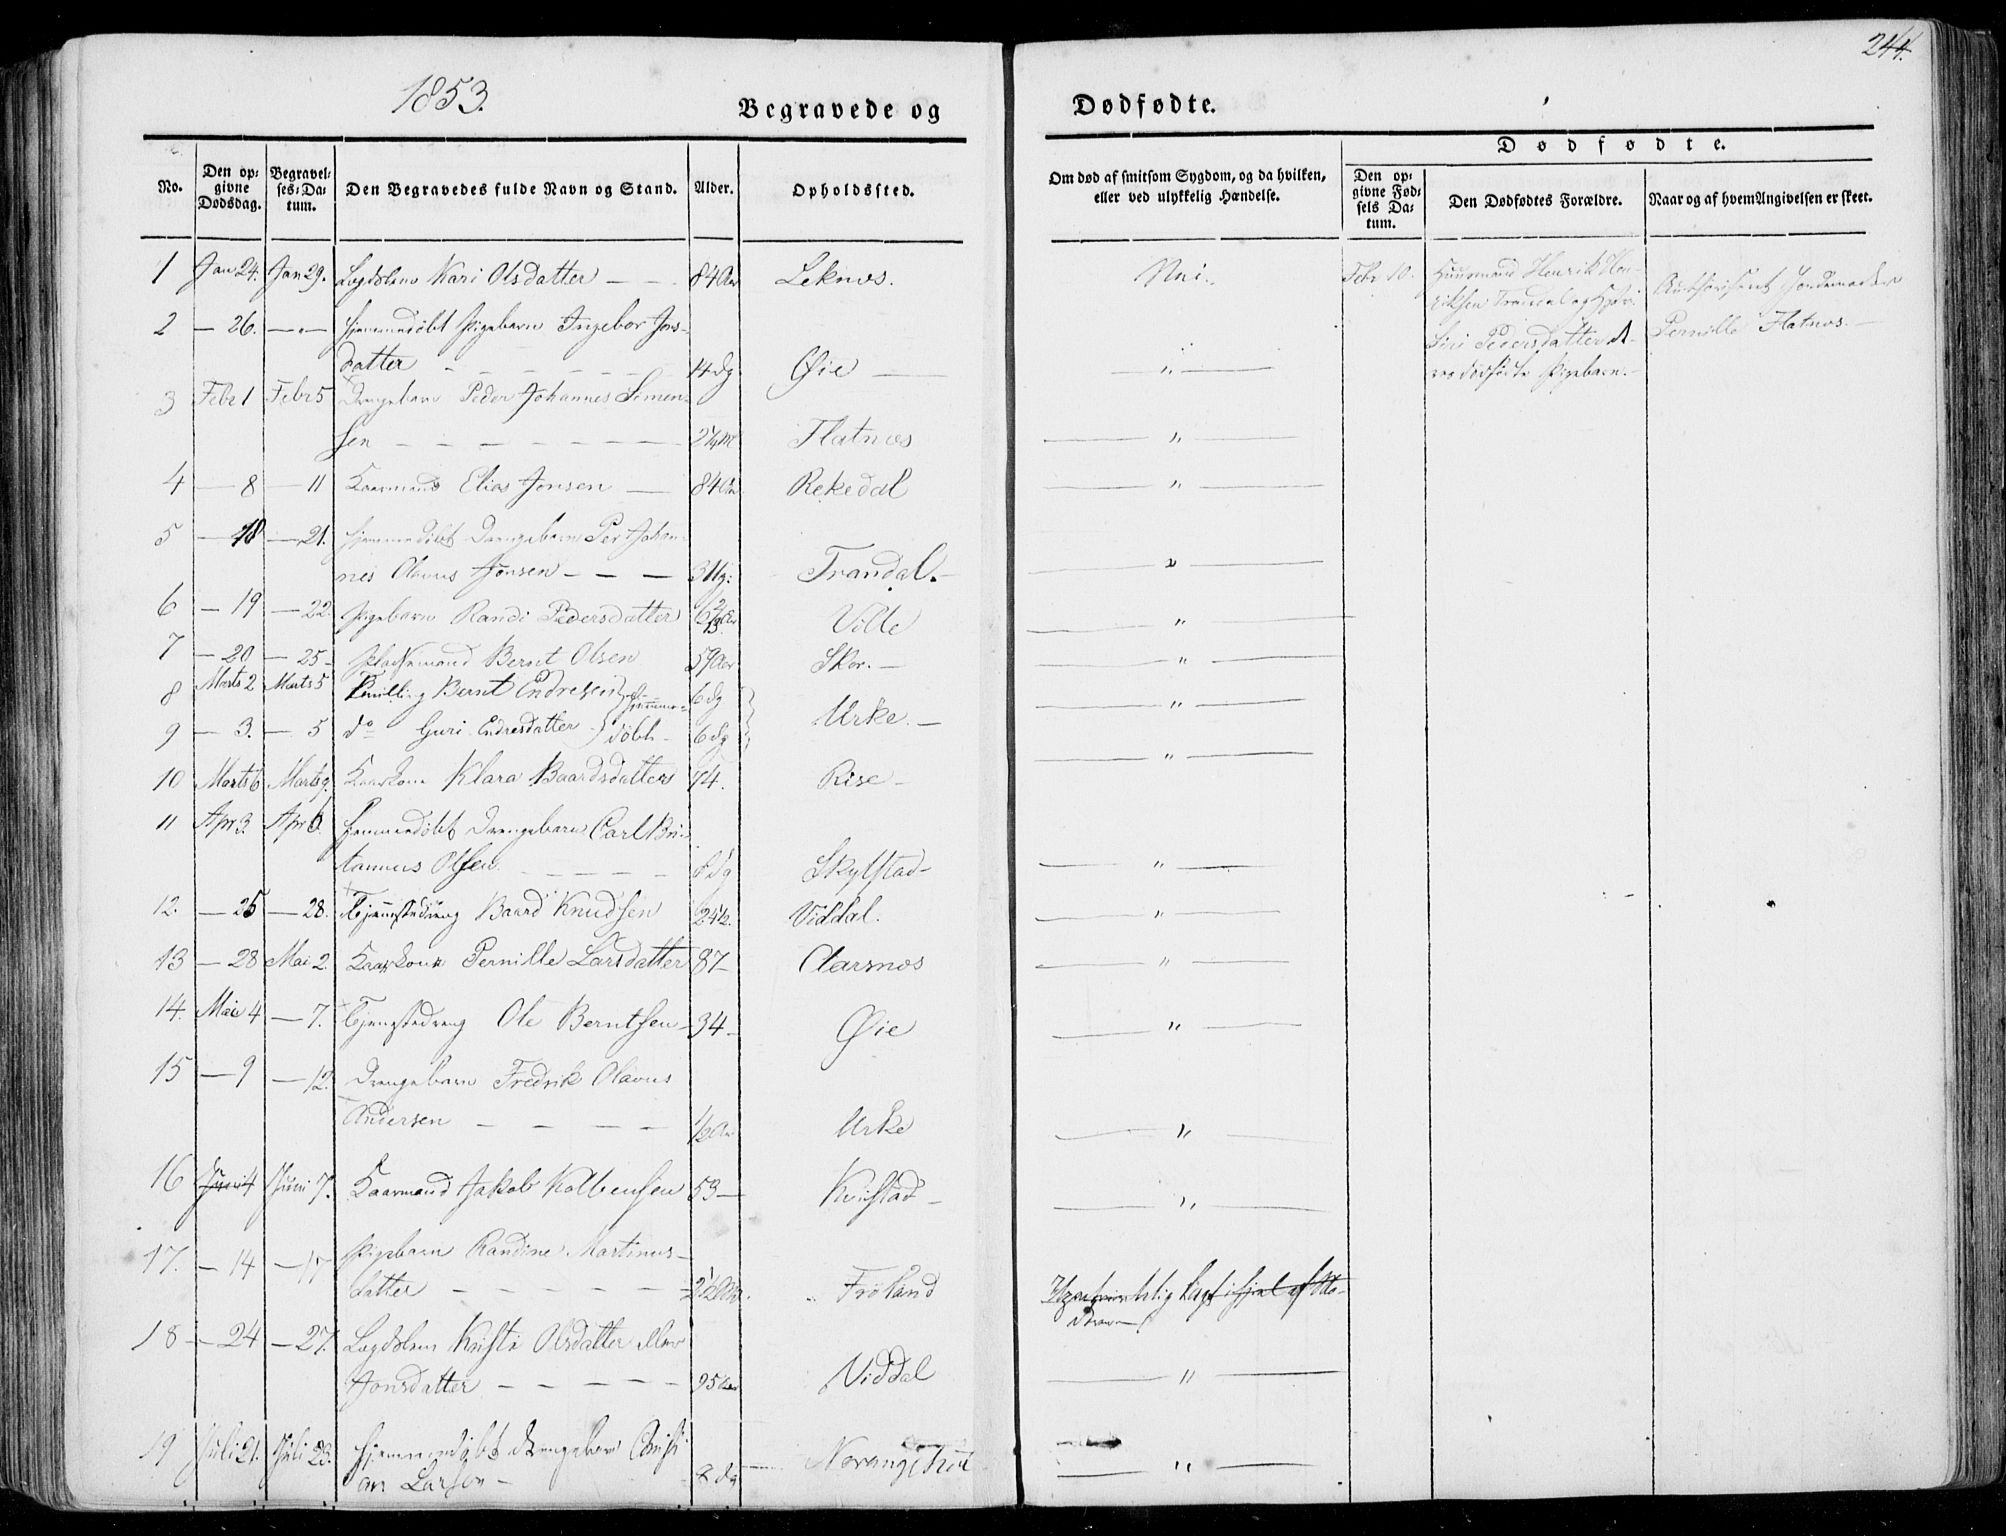 244.
1853.
Begravede og
Dødfødte.
No.
Den op-
givne
Dødsdag.
Begravel-
ses-Da-
tum.
Den Begravedes fulde Navn og Stand.
Alder.
Opholdssted.
Om død af smitsom Sygdom, og da hvilken,
eller ved ulykkelig Hændelse.
Dødfødte.
Den op-
givne Fød-
sels Da-
tum.
Den Dødfødtes Forældre.
Naar og af hvem Angivelsen er skeet.
1 Jan 24. Jan 29. Lægdslem Kari Olsdatter — — 84 Aar Leknes. Nei.
Febr 10. Huusmand Henrik Hen-
riksen Trandal og Hustru
Siri Pedersdatter
dødfødte Pigebarn.
Pernille Flatnes.
2 — 26. — " — hjemmedøbt Pigebarn Ingebor Jons-
datter — — — 14 dg Øie — — " —
3 Febr 1 Febr 5 Drengebarn Peder Johannes Simen-
sen — — — Flatnes — " —
4 — 8 — 11 Kaarmand Elias Jonsen — 84 Aar Rekedal — " —
5 — 18 — 21. hjemmedøbt Drengebarn Per Johan-
nes Olavus Jonsen — — — Trandal. — " —
6 — 19 — 22. Pigebarn Randi Pedersdatter Ville — " —
7 — 20 — 25 — Bernt Olsen 59 Aar Skor. — — " —
8 Marts 2 Marts 5 Tvilling Bernt Endresen hjemme- 6 dg Urke. — — " —
9 — 3. — 5 do Guri Endresdatter døbt 6 dg — " —
10 Marts 6 Marts 9. Kaarkone Klara Baardsdatter 74. Rise —
11 Apr 3. Apr 6. hjemmedøbt Drengebarn Carl Bri-
tannus Olsen — — — 8 dg Skylstad — — " —
12. — 25 — 28. Tjenestedreng Baard Knudsen 24 1/2. Viddal. — " —
13 — 28 Mai 2. Kaarkone Pernille Larsdatter 87 — Aarsnes — " —
14. Mai 4 — 7. Tjenestedreng Ole Berntsen — 34 — Øie — " —
15 — 9 — 12. Drengebarn Fredrik Olavus
Andersen — — — 1/2 Aar Urke — " —
16 Juni 4 Juni 7. Kaarmand Jakob Kolbensen 53 — Kvistad — — " —
17. — 14 — 17 Pigebarn Randine Martinus-
datter — — — 2 1/2 Frøland
lagt ihjel af Mo-
deren
18 — 24 — 27. Lægdslem Kristi Olsdatter eller
Jonsdatter — — — 95 Aar Viddal — " —
19 Juli 21. Juli 23. hjemmedøbt Drengebarn Christi-
an Larsen — 8 dg — " —